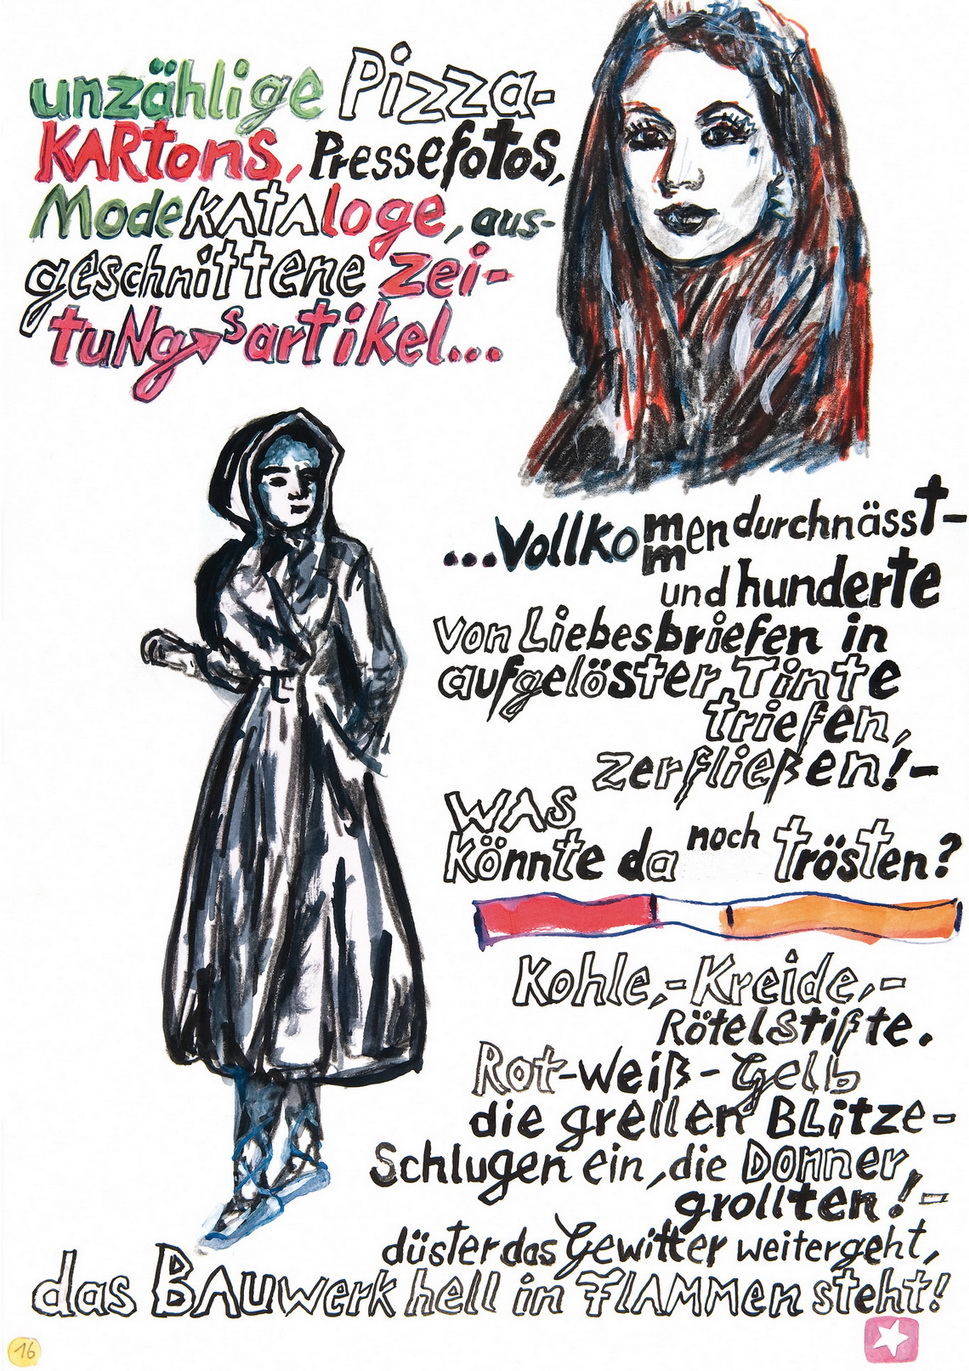 unzählige Pizza-
KARtons, Pressefotos,
Modekataloge, aus-
geschnittene Zei-
tuNgsartikel...
...Vollkommen durchnässt-
und hunderte
von Liebesbriefen in
aufgelöster Tinte
triefen,
zerfließen!-
WAS
könnte da noch trösten?
Kohle,-Kreide,-
Rötelstifte.
Rot-weiß-Gelb
die grellen BLitze-
Schlugen ein, die Donner,
grollten!-
düster das Gewitter weitergeht,
das BAUwerk hell in FLAMMen steht!
16